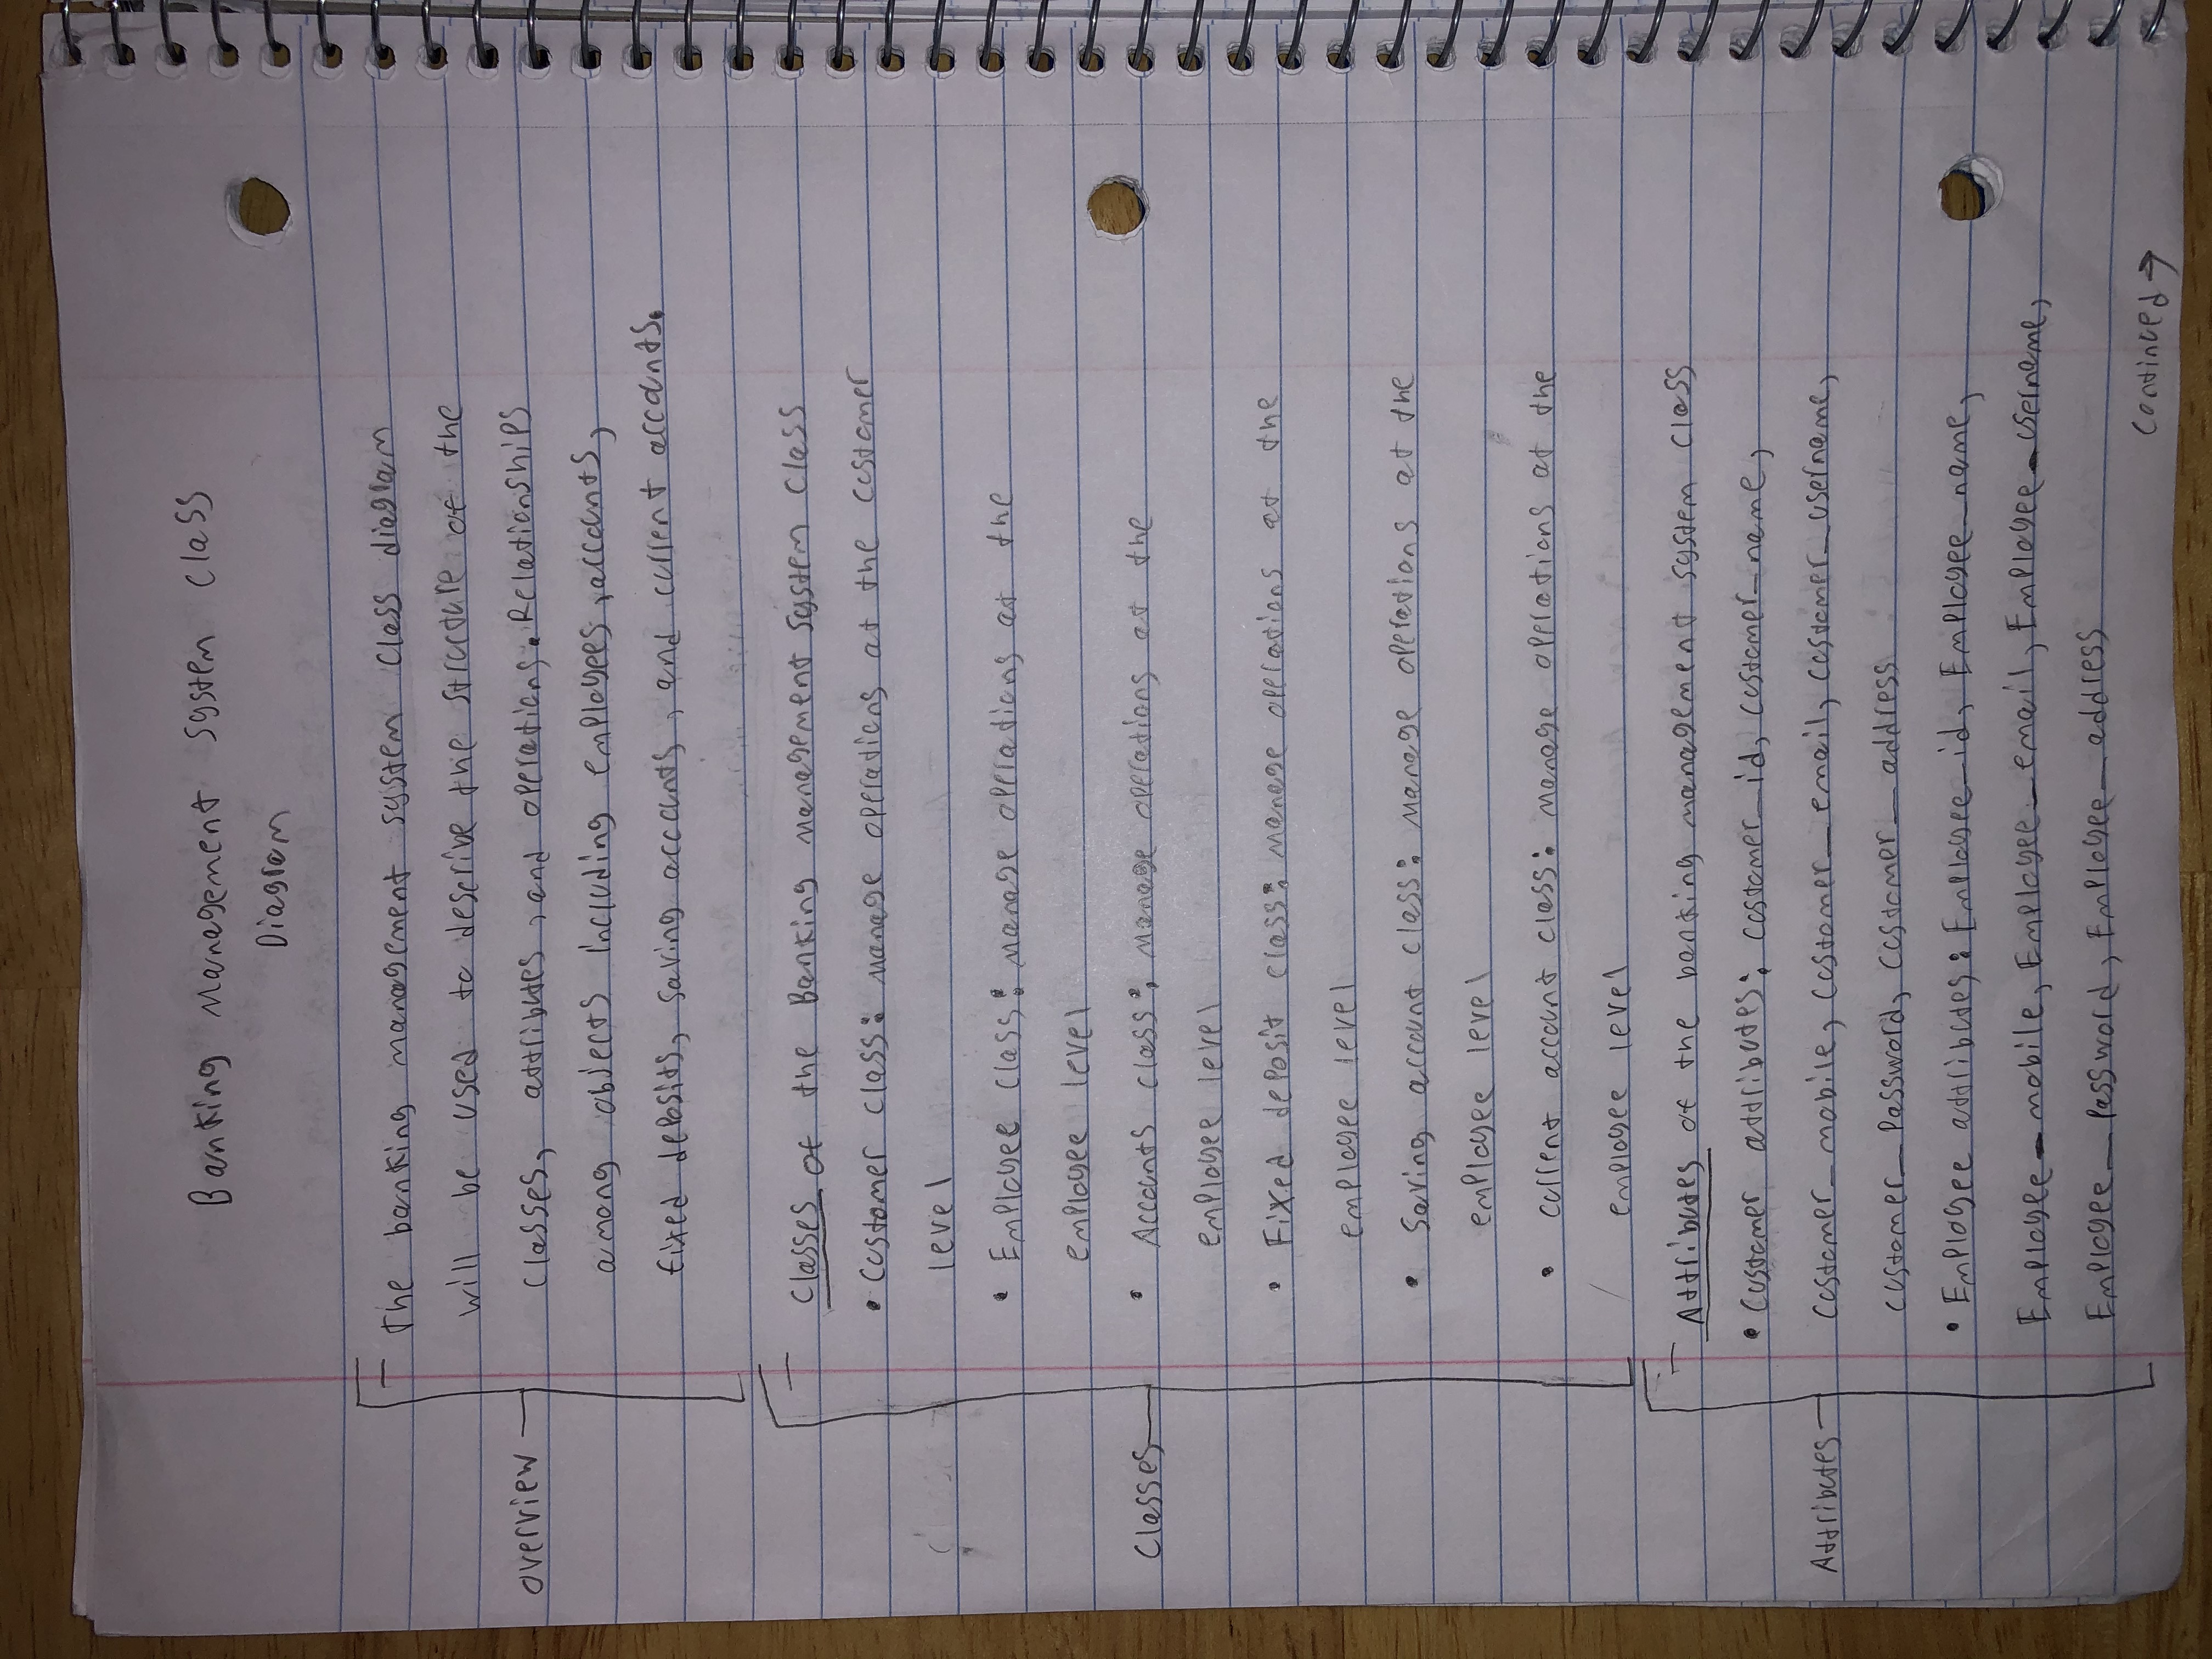 Banking Management System Class
Diagram
The banking management system class diagram
will be used to describe the structure of the
overview
classes, attributes, and operations. Relationships
among objects including employees, accounts,
fixed deposits, saving accounts, and current accounts.
Classes of the Banking Management System Class
• Customer class: manage operations at the customer
level
• Employee class: manage operations at the
employee level
Classes
• Accounts class: manage operations at the
employee level
• Fixed deposit class: manage operations at the
employee level
• Saving account class: manage operations at the
employee level
• current account class: manage operations at the
employee level
Attributes of the banking management system class
• Customer attributes: customer_id, customer_name,
Attributes
customer_mobile, customer_email, customer_username,
customer_password, customer_address
• Employee attributes: Employee_id, Employee_name,
Employee_mobile, Employee_email, Employee_username,
Employee_password, Employee_address
Continued →